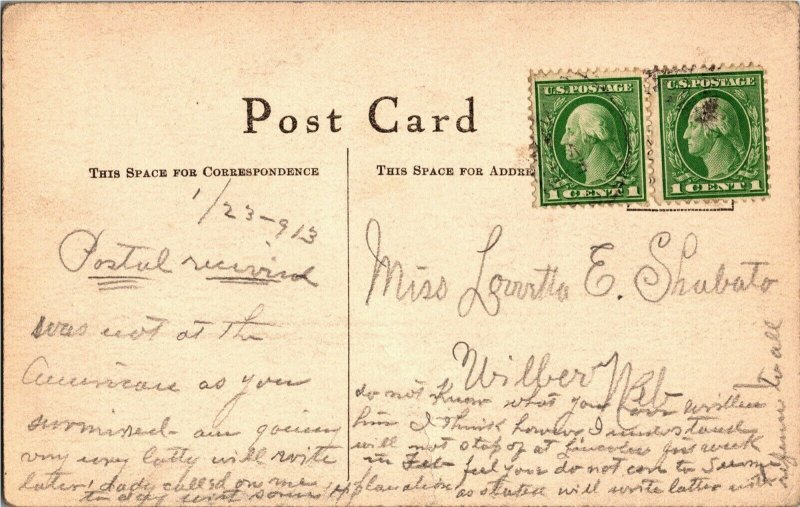 Post Card
THIS SPACE FOR CORRESPONDENCE
THIS SPACE FOR ADDRE
U.S. POSTAGE
1 CENT 1
U.S. POSTAGE
1 CENT 1
1/23-913
Postal
was not at the
American as you
surmised - am going
my way will write
later called on me
to day
Miss E. Shabato
Wilber Neb
do not know what you have written
him I think however I understand
will not stop of at Lincoln first week
in Feb feel you do not care to
as stated will write latter
to all